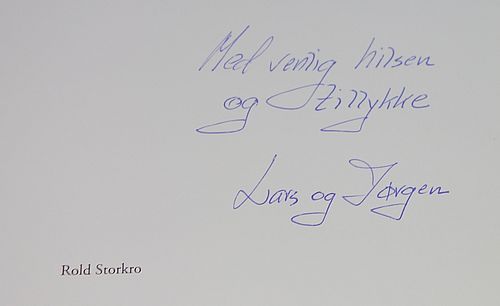 Med venlig hilsen
og tillykke
Lars og Jørgen
Rold Storkro